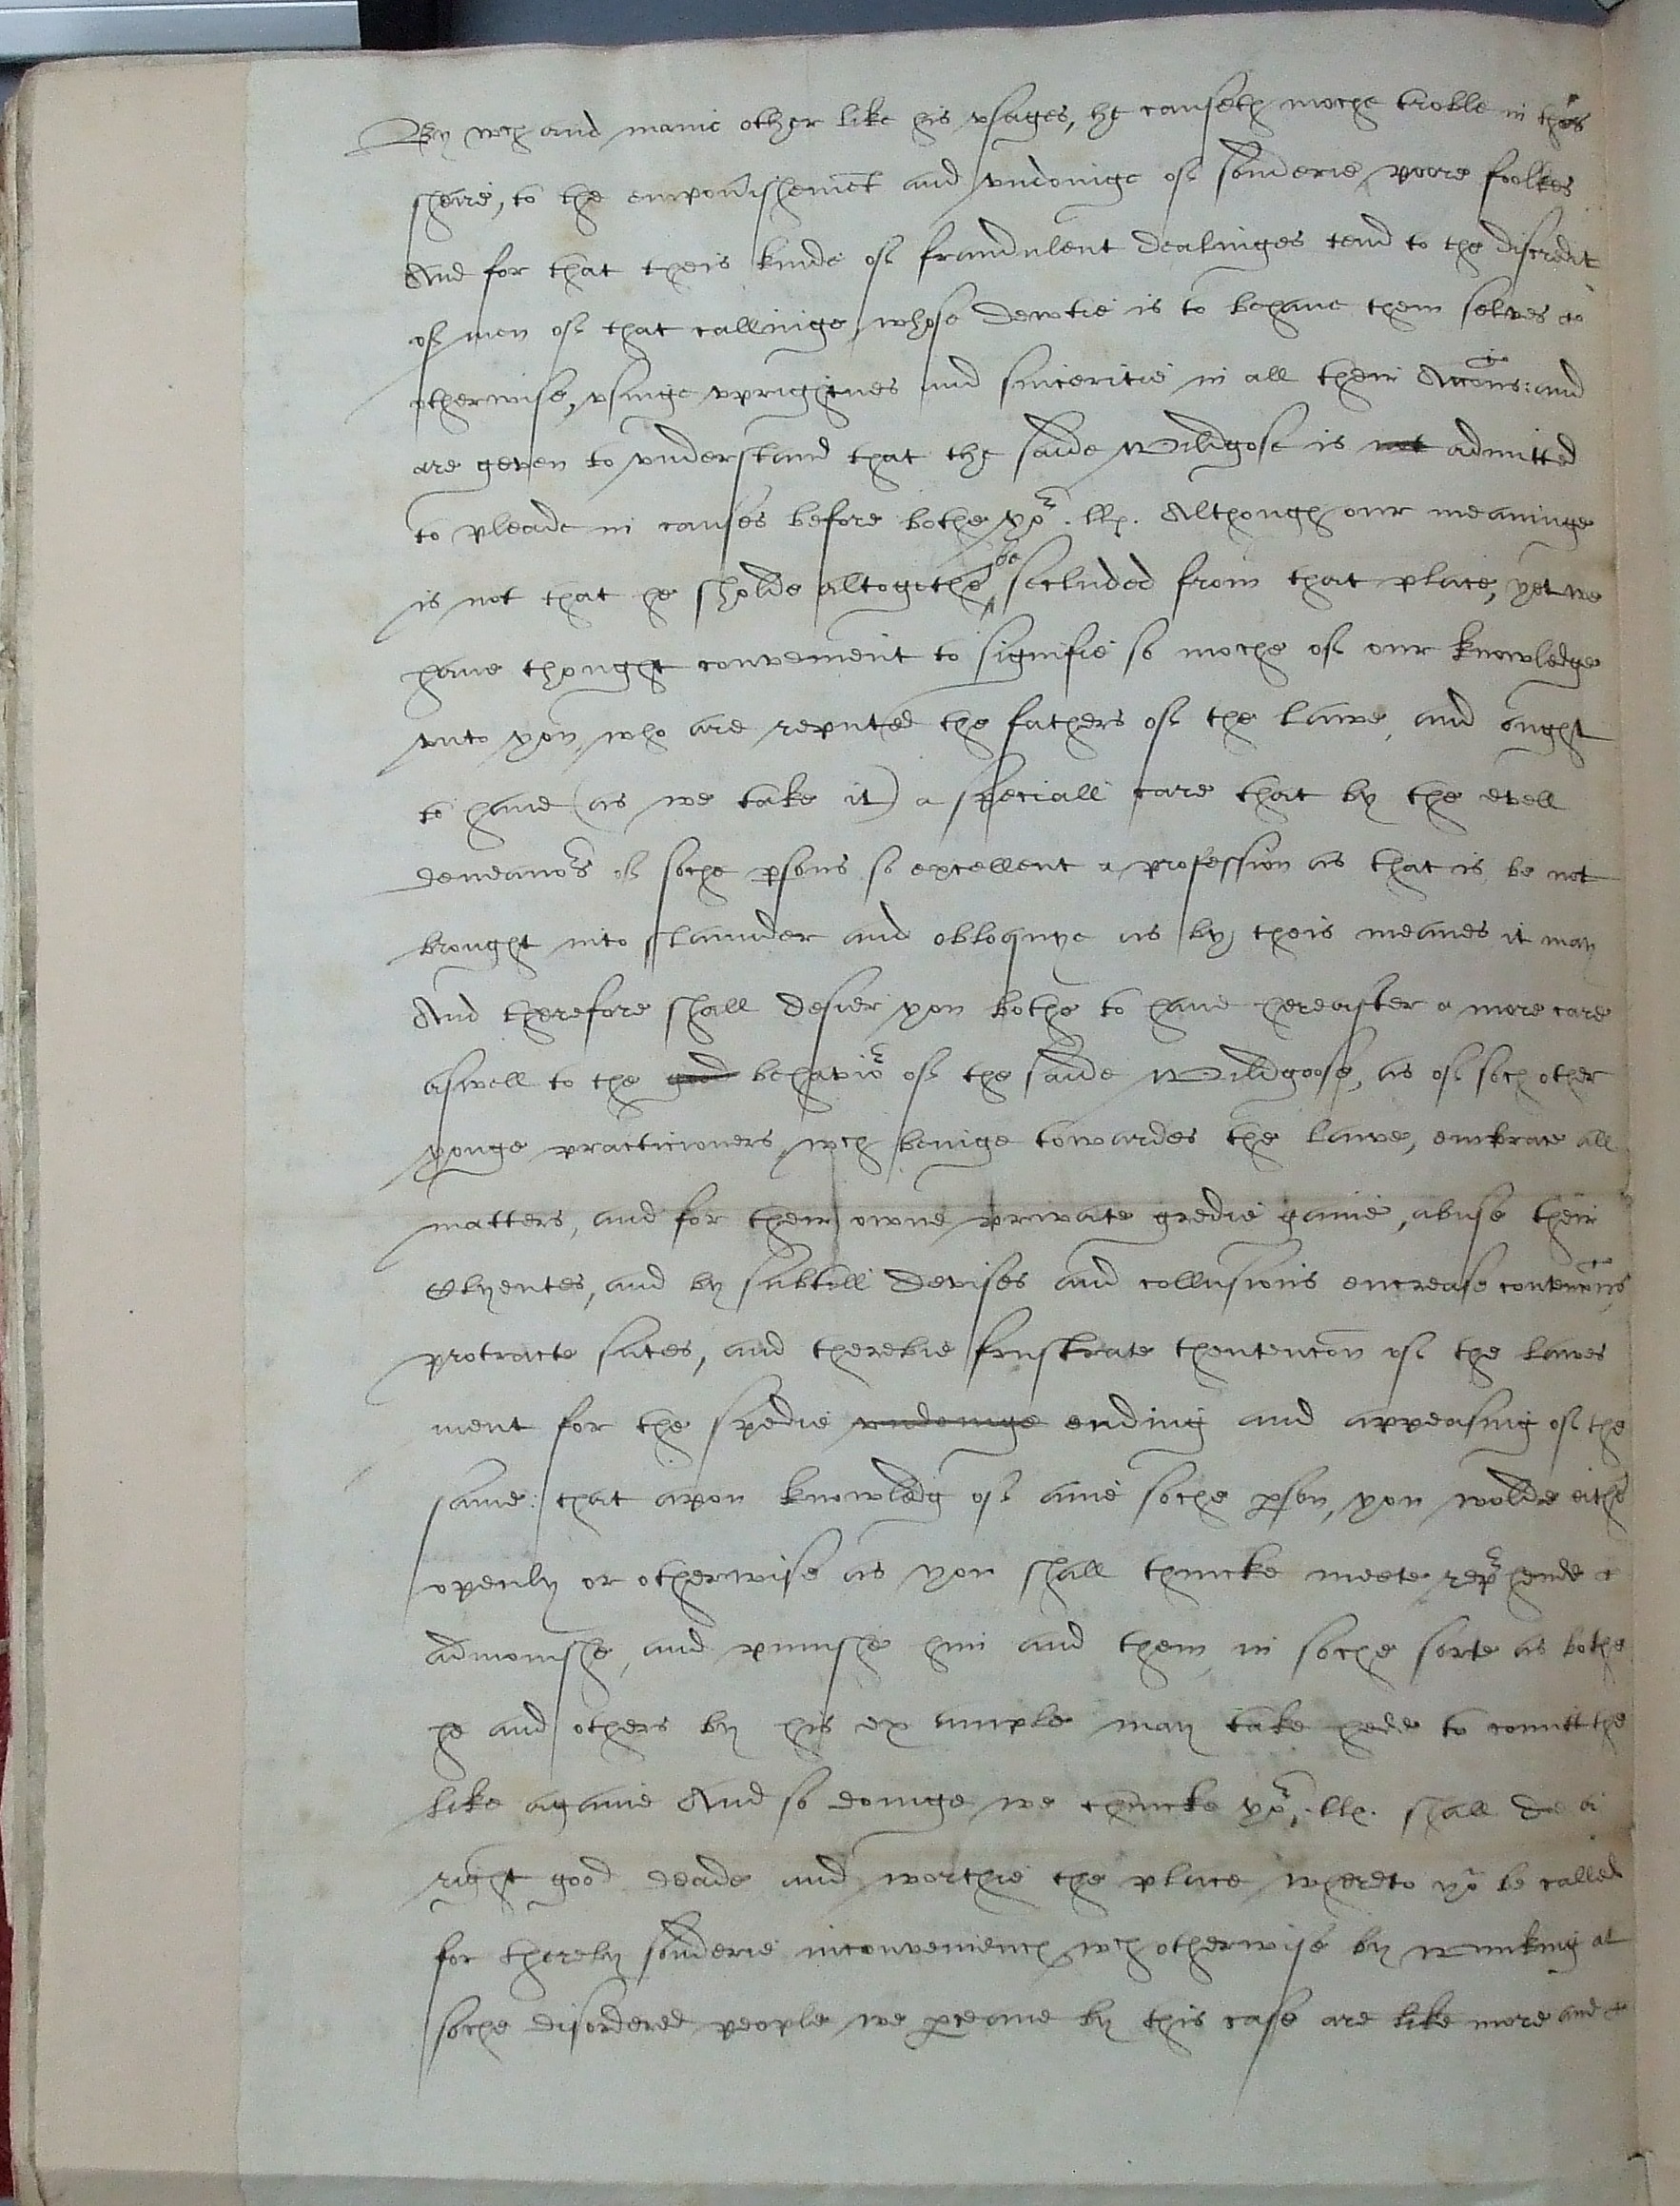 By wch and manie other like his vsages, he causeth moche troble in this
sheire, to the empourishement and vndoinge of sonderie poore foolkes
And for that theis kinde of fraudulent dealinges tend to the discredit
of men of that callinge, whose dewtie is to behaue them selves
otherwise, vsinge vprightnes and sinceritie in all their Accons: and
are geven to vnderstand that the saide Wildgose is not admitted
to pleade in causes before bothe yor. llp. Although our meaninge
is not that he sholde altogethe be secluded from that place, yet we
haue thought convenient to signifie so moche of our knowledge
vnto you, who are reputed the fathers of the lawe, and ought
to haue (as we take it) a speciall care that by the evell
demeanors of soche psons so excellent a profession as that is, be not
brought into slaunder and obloquye as by theis meanes it may
And therefore shall desier you bothe to haue hereafter a more care
aswell to the good behavior of the saide Wildgoose, as of soch other
yonge practicioners, wch beinge towardes the lawe, embrace all
matters, and for their owne private gredie gaine, abuse their
Clyentes, and by subtill devises and collusions encrease contencons
protracte sutes, and therebie frustrate thentencon of the lawes
ment for the spedie vndoinge ending and appeasing of the
same: that apon knowledg of anie soche pson, you wolde eithe
openly or otherwise as you shall thincke meete reprhende &
admonishe, and punishe him and them, in soche sorte as bothe
he and others by his example may take hede to comitt the
like againe And so doinge we thincke yor. llp. shall do a
right good deade and worthie the place whereto yo be called
for thereby sonderie inconveniench wch otherwise by winking at
soche disordered people we pceaue by this case are like more and